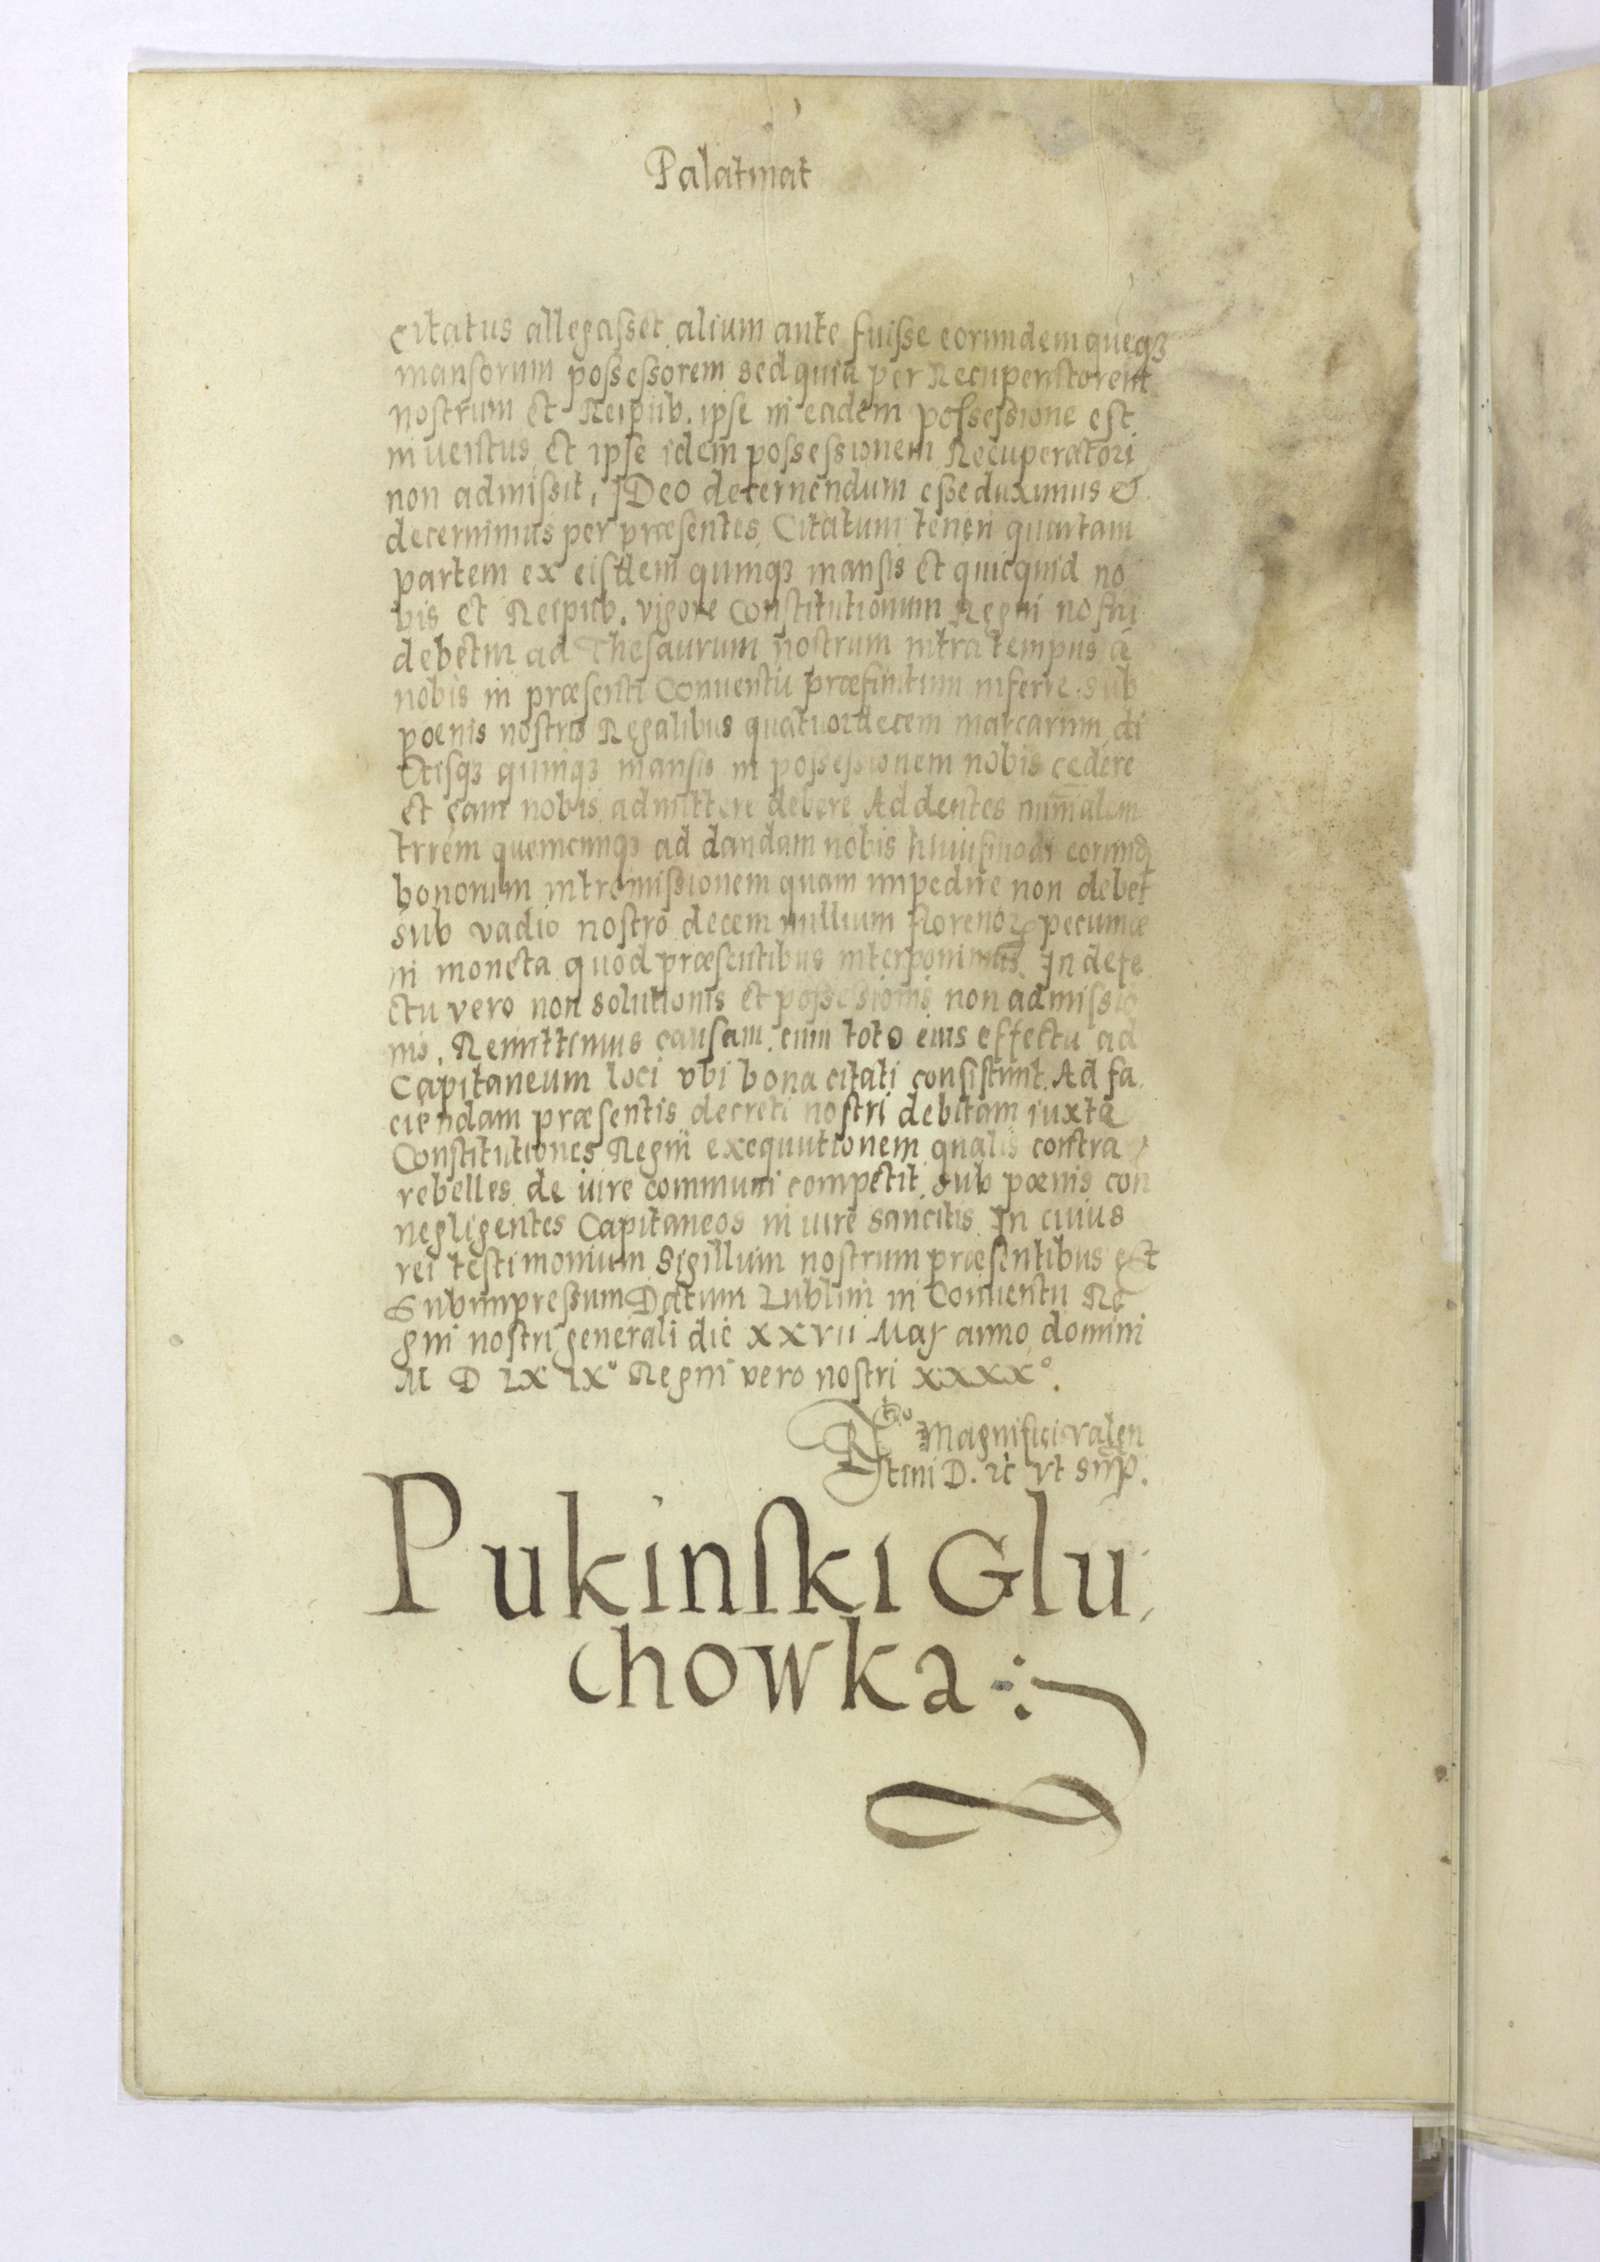 Palatinat
Citatus allegasset alium ante fuisse eorundem quinq3
mansorum possessorem sed quia per Recuperatorem
nostrum et Reipub. ipse in eadem possessione est
inuentus et ipse idem possessionem Recuperatori
non admissit, IDeo decernendum esse duximus &
decernimus per præsentes Citatum teneri quartam
partem ex eisdem quinq3 mansis et quicquid no
bis et Reipub. vigore Constitutionum Regni nostri
debetur ad Thesaurum nostrum intra tempus a
nobis in præsenti Conuentu præfinitum inferre sub
poenis nostris Regalibus quatuordecem marcarum di
ctisq3 quinq3 mansis in possessionem nobis cedere
et eam nobis admittere debere Addentes
quemcunq3 ad dandam nobis huiusmodi eorund
bonorum intromissionem quam impedire non debet
sub vadio nostro decem millium florenor pecuniæ
in moneta quod præsentibus interponimus. In defe
ctu vero non solutionis et possessionis non admissio
nis, Remittimus causam cum toto eius effectu ad
Capitaneum loci vbi bona citati consistunt. Ad fa
ciendam præsentis decreti nostri debitam iuxta
Constitutiones Regni exequutionem qualis contra
rebelles de iure communi competit sub pœnis con
negligentes Capitaneos in iure sancitis In cuius
rei testimonium Sigillum nostrum præsentibus est
Subimpressum Datum Lublini in Conuentu Re
gni nostri generali die XXVII Maij anno domini
M D LX IX° Regni vero nostri XXXX°.
Rtio Magnifici Valen
tini D. rc vt sup.
Pukinski Glu
chowka